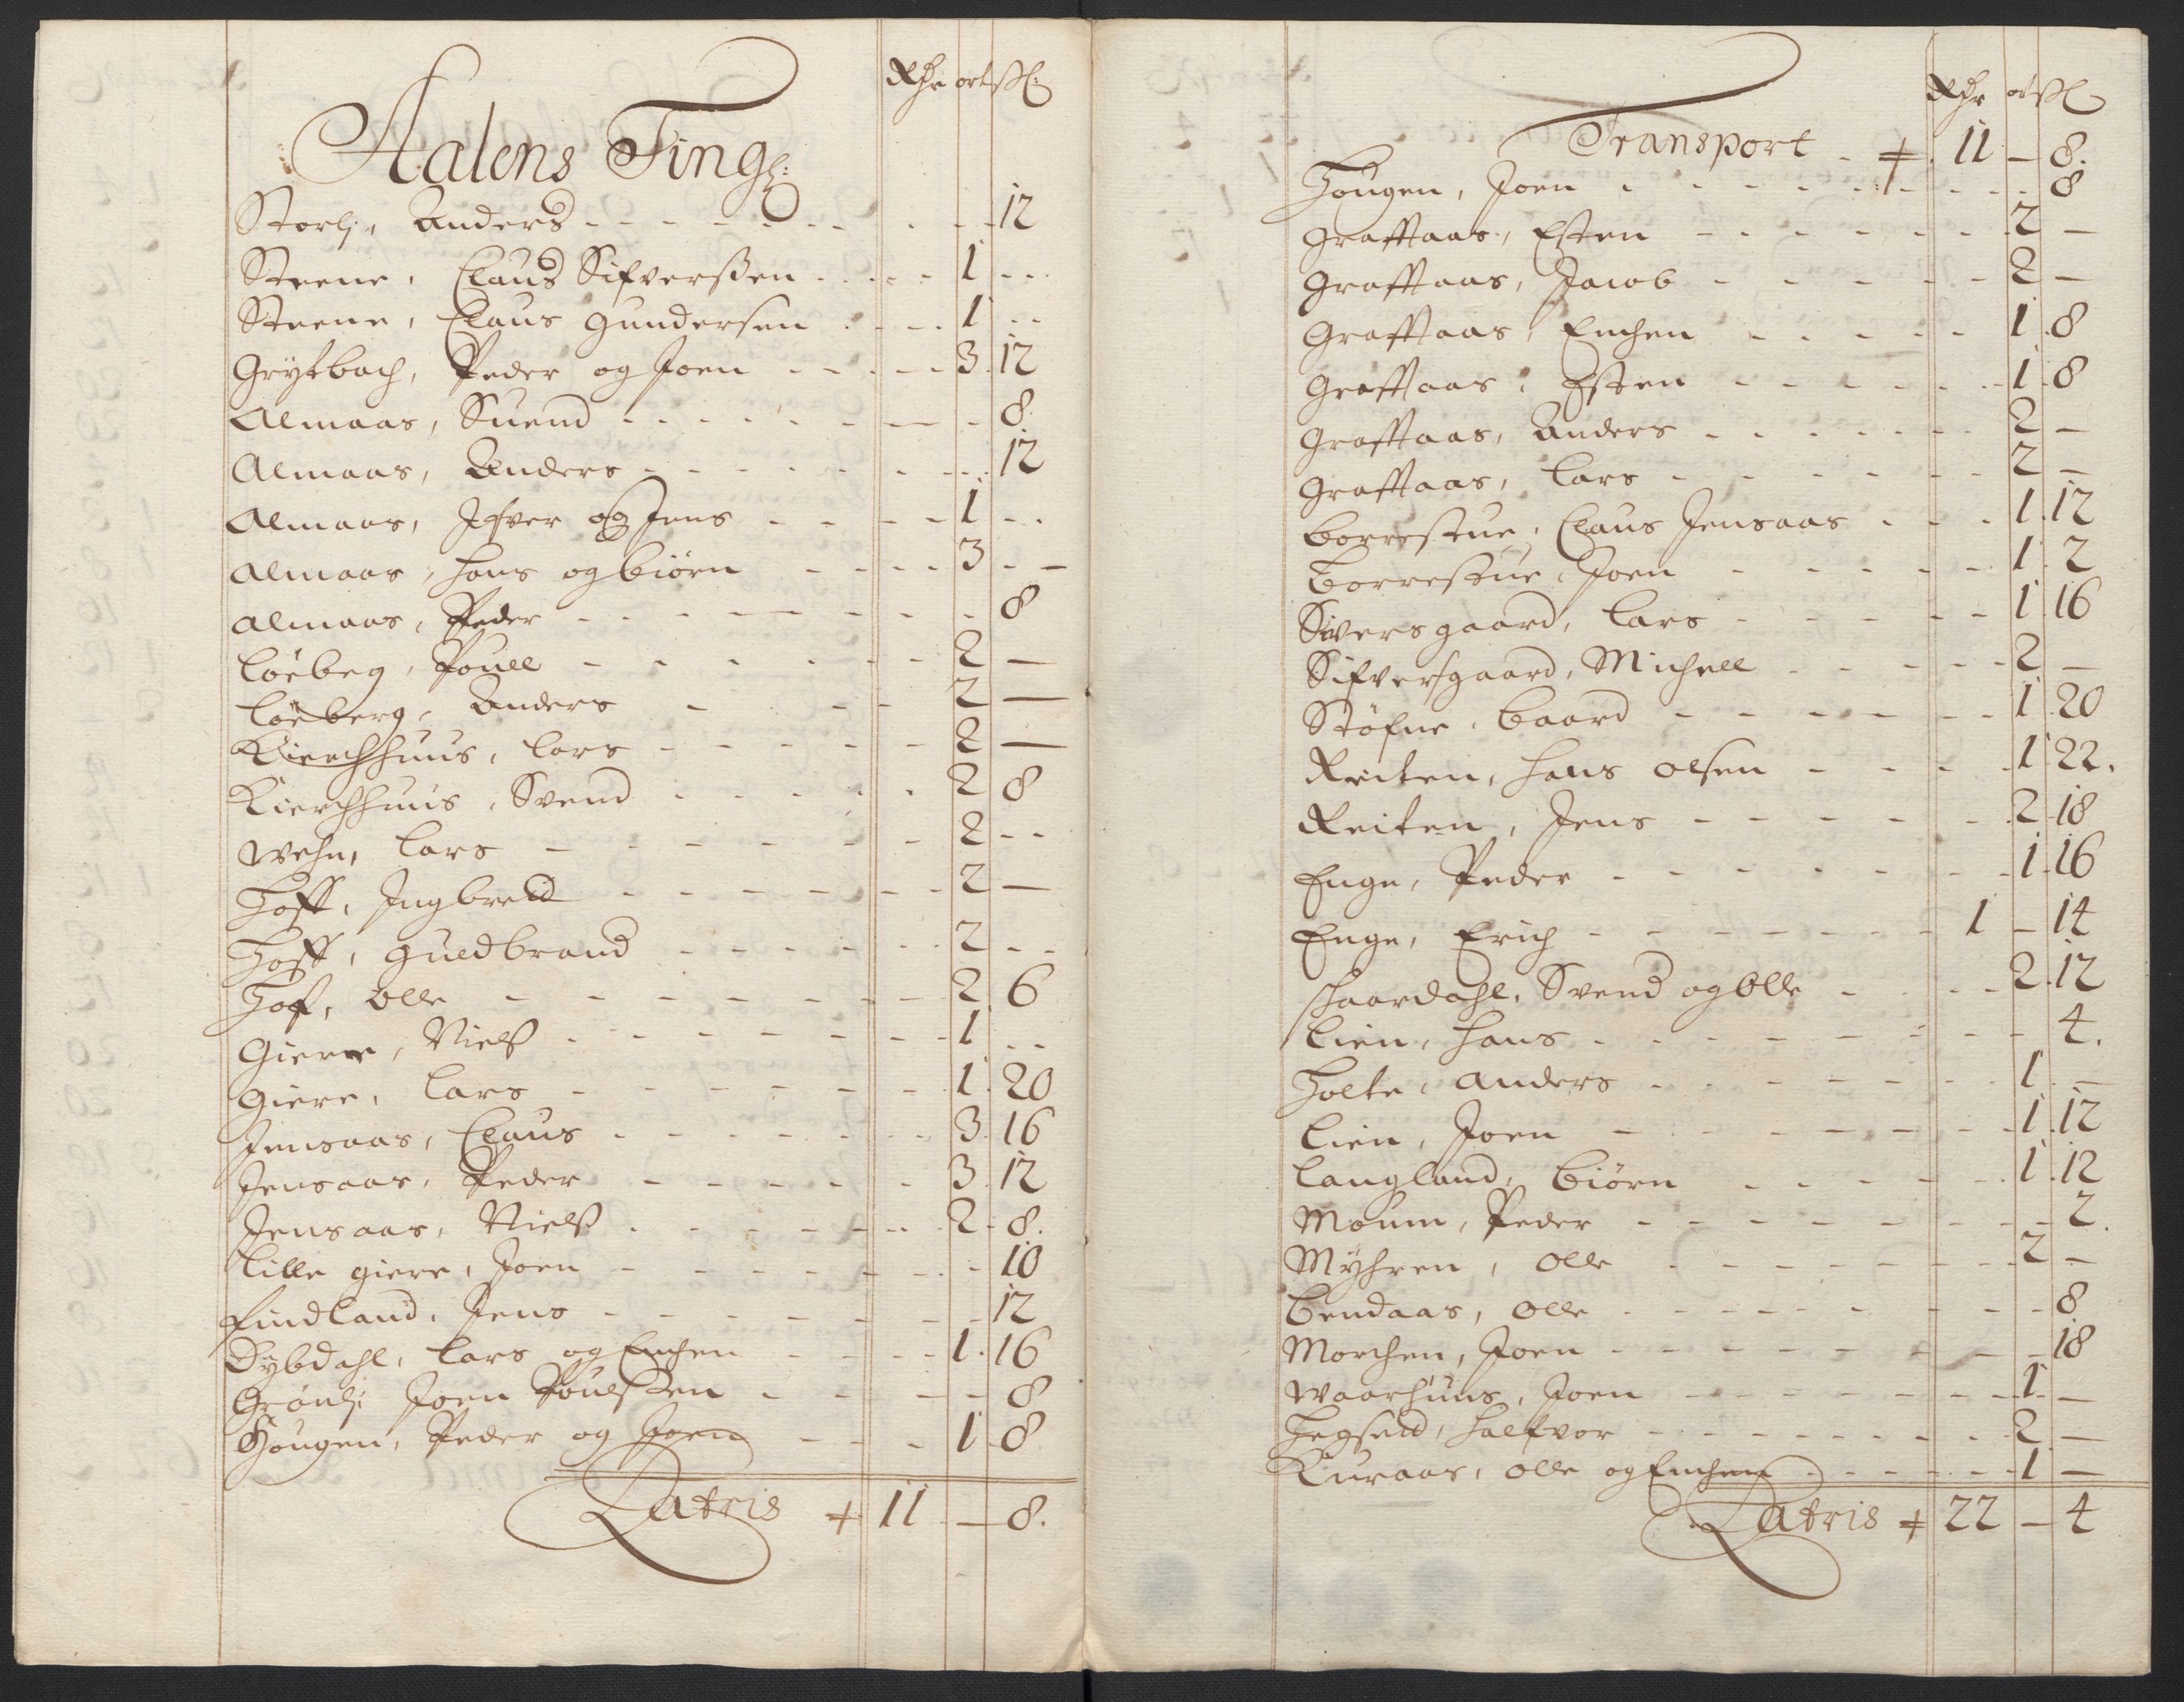 Rdr ort ß:
Aalens Tingl:
Storlj, Anders - - - 12
Steene, Claus Sifverßen - - 1 - -
Steene, Claus Gundersen - - 1 - -
Grytbach, Peder og Joen - - 3 12
Almaas, Suend - - - 8
Almaas, Anders - - - 12
Almaas, Ifver og Jens - - 1 - -
Almaas, Hans og biörn - - 3 - -
Almaas, Peder - - - 8
Löebeg, Pouell - - 2 —
Löeberg, Anders - - 2 —
Kierchhuus, Lars - - 2 —
Kierchhuus, Svend - - 2 8
Wehn, Lars - - 2 - -
Hoff, Ingbreid - - 2 —
Hoff, Guedbrand - - 2 - -
Hof, Olle - - 2 6
Gierre, Nielß - - 1 - -
Giere, Lars - - 1 20
Jensaas, Claus - - 3 16
Jensaas, Peder - - 3 12
Jensaas, Nielß - - 2 8.
Lille giere, Joen - - - 10
Findland, Jens - - - 12
Dybdahl, Lars og Enchen - - 1 16
Grönlj Joen Poulsen - - - 8
Hougen, Peder og Joen - - 1 8
Latris + 11 — 8.
Rdr ort ß
Transport - + 11 — 8.
Hougen, Joen - - - 8
Graftaas, Esten - - 2 —
Graftaas, Jacob - - 2 —
Graftaas, Enchen - - 1 8
Graftaas, Esten - - 1 8
Graftaas, Anders - - 2 —
Graftaas, Lars - - 2 —
Borrestue, Claus Jensaas - - 1 12
Borrestue, Joen - - 1 2
Siversgaard, Lars - - 1 16
Sifversgaard, Michell - - 2 —
Stöfne, Baard - - 1 20
Reiten, Hans olsen - - 1 22.
Reiten, Jens - - 2 18
Enge, Peder - - 1 16
Enge, Erich - - 1 — 14
Schaardahl, Svend og Olle - - 2 12
Lien, Hans - - - 4.
Holte, Anders - - 1 —
Lien, Joen - - 1 12
Langland, Biörn - - 1 12
Moum, Peder - - - 2.
Myhren, Olle - - 2 —
Bendaas, Olle - - - 8
Morchen, Joen - - - 18
Waarhuus, Joen - - 1 —
Hegseid, Halfvor - - 2 —
Kuraas, Olle og Enchen - - 1 —
Latris + 22 — 4